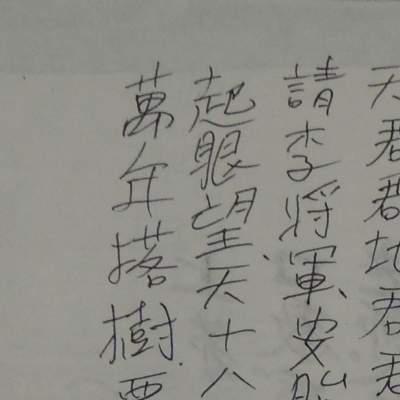 天君君地君君
請李將軍安胎
起眼望天十八
萬年搭樹要